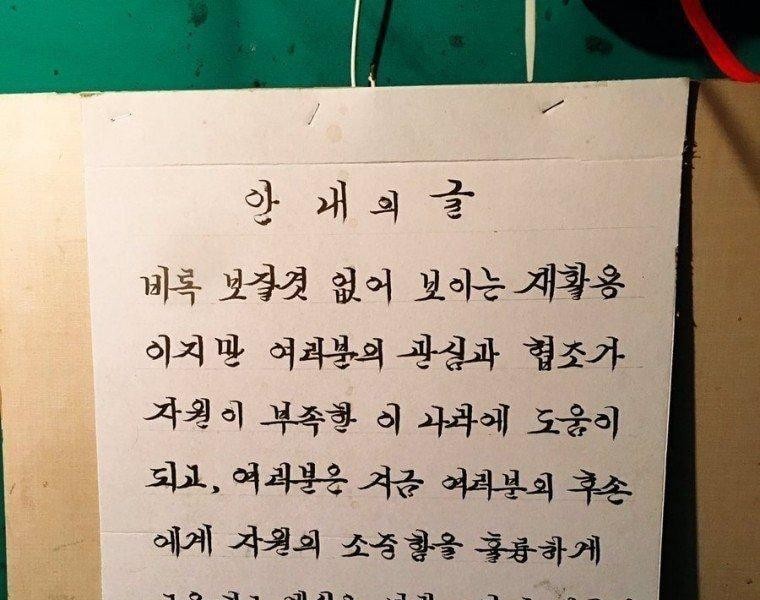 안 내 의 글
비록 보잘것 없어 보이는 재활용
이지만 여러분의 관심과 협조가
자원이 부족한 이 사회에 도움이
되고, 여러분은 지금 여러분의 후손
에게 자원의 소중함을 훌륭하게